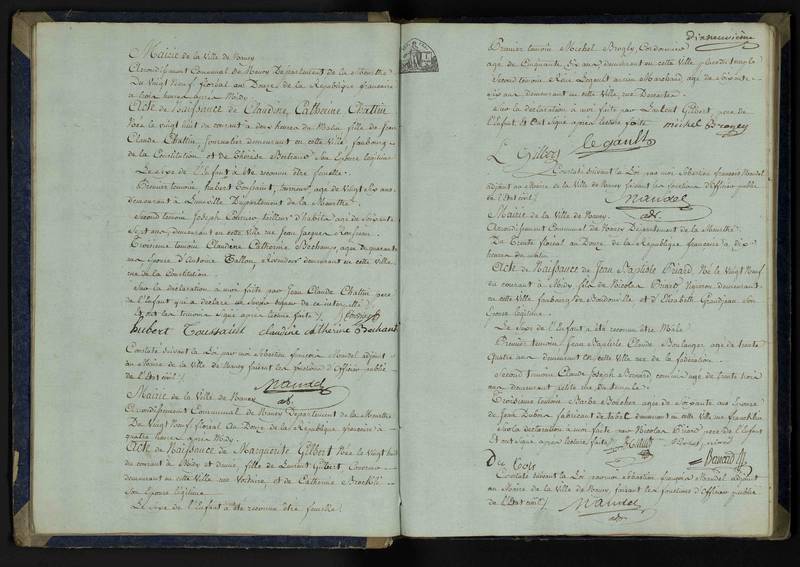 Mairie de la Ville de Nancy
Arrondissement Communal de Nancy Département de la Meurthe
Du Vingt Neuf floreal an Douze de la République française
à trois heures après Midy.
Acte de Naissance de Claudine Catherine Chattin
Née le vingt huit du courant à deux heures du Matin, fille de Jean
Claude Chattin, Journalier demeurant en cette Ville, faubourg
de la Constitution, et de Thérèse Son Epouse légitime
Le sexe de l'Enfant à été reconnu être femelle.
Premier temoin, hubert Toussaint, age de Vingt Six ans,
demeurant à Luneville Département de la Meurthe.
Second temoin Joseph tailleur d'habits age de Soixante
Sept ans, demeurant en cette Ville rue Jean Jacques Rousseau.
Troisieme temoin Claudine Catherine Bechamp, agée de quarante
ans Epouse d'Antoine Tallon, Revendeur demeurant en cette Ville
rue de la Constitution.
Sur la déclaration à moi faite par Jean Claude Chattin pere
de l'Enfant qui a déclaré ne Savoir Signer de ce interpellé
Et ont les temoins Signé après lecture faite
hubert Toussaint claudine catherine Bechamp
Constaté suivant la Loi par moi Sébastien françois Mandel adjoint
au Maire de la Ville de Nancy faisant les fonctions d'Officier public
de l'Etat civil
Mandel
adt.
Mairie de la Ville de Nancy
Arrondissement Communal de Nancy Département de la Meurthe
Du Vingt Neuf floreal au Douze de la République française à
quatre heures après Midy.
Acte de Naissance de Marguerite Gilbert Née le Vingt huit
du courant à Midy et demie, fille de Laurent Gilbert,
demeurant en cette Ville rue Voltaire et de Catherine
Son Epouse légitime
Le Sexe de l'Enfant à été reconnu être femelle.
dixneuvième
Premier temoin Michel Brogly, Cordonnier
agé de Cinquante Six ans, demeurant en cette Ville place du temple
Second temoin René Legault ancien Marchand, agé de Soixante
Six ans demeurant en cette Ville, rue Descartes.
Sur la déclaration à moi faite par Laurent Gilbert pere de
l'Enfant Et ont Signé après lecture faite michel Brogly
L Gilbert le gault
Constaté suivant la Loi par moi Sébastien françois Mandel
adjoint au Maire de la Ville de Nancy faisant les fonctions d'Officier public
de l'Etat civil
Mandel
adt.
Mairie de la Ville de Nancy
Arrondissement Communal de Nancy Département de la Meurthe
Du Trente floreal an Douze de la République française à dix
heures du matin
Acte de Naissance de Jean Baptiste Picard, Né le Vingt Neuf
du courant à Midy fils de Nicolas Picard Vigneron, demeurant
en cette Ville faubourg de Boudonville et d'Elisabeth Gaudjean Son
Epouse légitime.
Le Sexe de l'Enfant a été reconnu être Mâle.
Premier temoin Jean Baptiste Claude Boulanger agé de trente
quatre ans demeurant en cette Ville rue de la fédération.
Second temoin Claude Joseph Bernard commis agé de trente trois
ans demeurant
Troisieme temoin Barbe Boucher agée de Soixante ans Epouse
de Jean Dubois fabricant de tabac demeurant en cette Ville rue franklin
Sur la déclaration à moi faite par Nicolas Picard pere de l'Enfant
Et ont Signé après lecture faite
Bernard
Constaté suivant la Loi par moi Sébastien françois Mandel adjoint
au Maire de la Ville de Nancy, faisant les fonctions d'Officier public
de l'Etat civil
Mandel
adt.